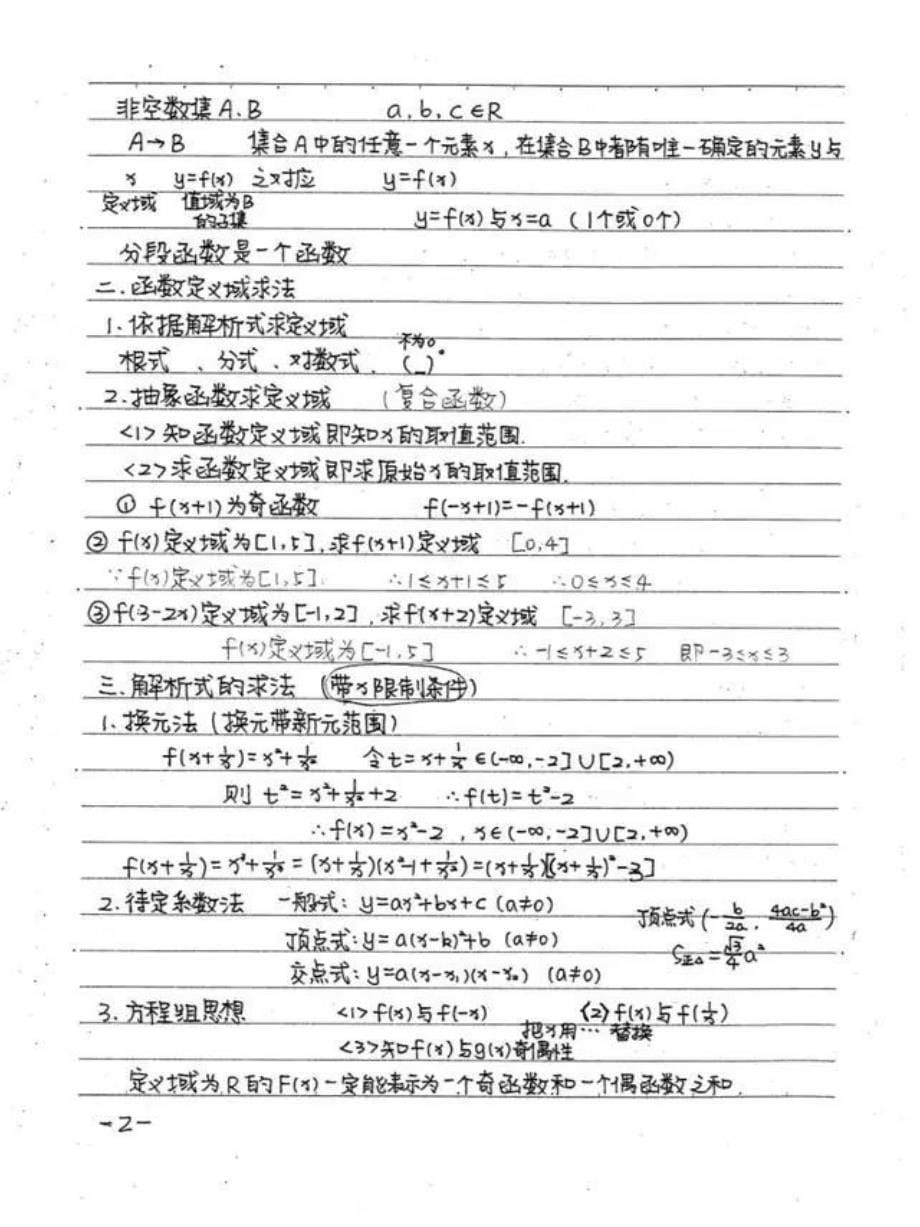 非空数集A、B a,b,c∈R
A→B 集合A中的任意一个元素x,在集合B中都有唯一确定的元素y与
x y=f(x) 之对应 y=f(x)
定义域 值域为B的子集
y=f(x)与x=a (1个或0个)
分段函数是一个函数
二.函数定义域求法
1.依据解析式求定义域
不为0
根式、分式、对数式、(_)°
2.抽象函数求定义域 (复合函数)
<1>知函数定义域即知x的取值范围.
<2>求函数定义域即求原始x的取值范围.
① f(x+1)为奇函数 f(-x+1)=-f(x+1)
② f(x)定义域为[1,5],求f(x+1)定义域 [0,4]
∵f(x)定义域为[1,5]. ∴1≤x+1≤5 ∴0≤x≤4
③f(3-2x)定义域为[-1,2],求f(x+2)定义域 [-3,3]
f(x)定义域为[-1,5] ∴-1≤x+2≤5 即-3≤x≤3
三.解析式的求法 (带x限制条件)
1.换元法(换元带新元范围)
f(x+1/x)=x²+1/x² 令t=x+1/x∈(-∞,-2]∪[2,+∞)
则 t²=x²+1/x²+2 ∴f(t)=t²-2
∴f(x)=x²-2 ,x∈(-∞,-2]∪[2,+∞)
f(x+1/x)=x³+1/x³=(x+1/x)(x²-1+1/x²)=(x+1/x)[(x+1/x)²-3]
2.待定系数法 一般式:y=ax²+bx+c (a≠0)
顶点式(-b/2a, (4ac-b²)/4a)
顶点式:y=a(x-k)²+b (a≠0)
S正△=√3/4 a²
交点式:y=a(x-x₁)(x-x₂) (a≠0)
3.方程组思想 <1>f(x)与f(-x) <2>f(x)与f(1/x)
把x用…替换
<3>知f(x)与g(x)奇偶性
定义域为R的F(x)一定能表示为一个奇函数和一个偶函数之和.
-2-